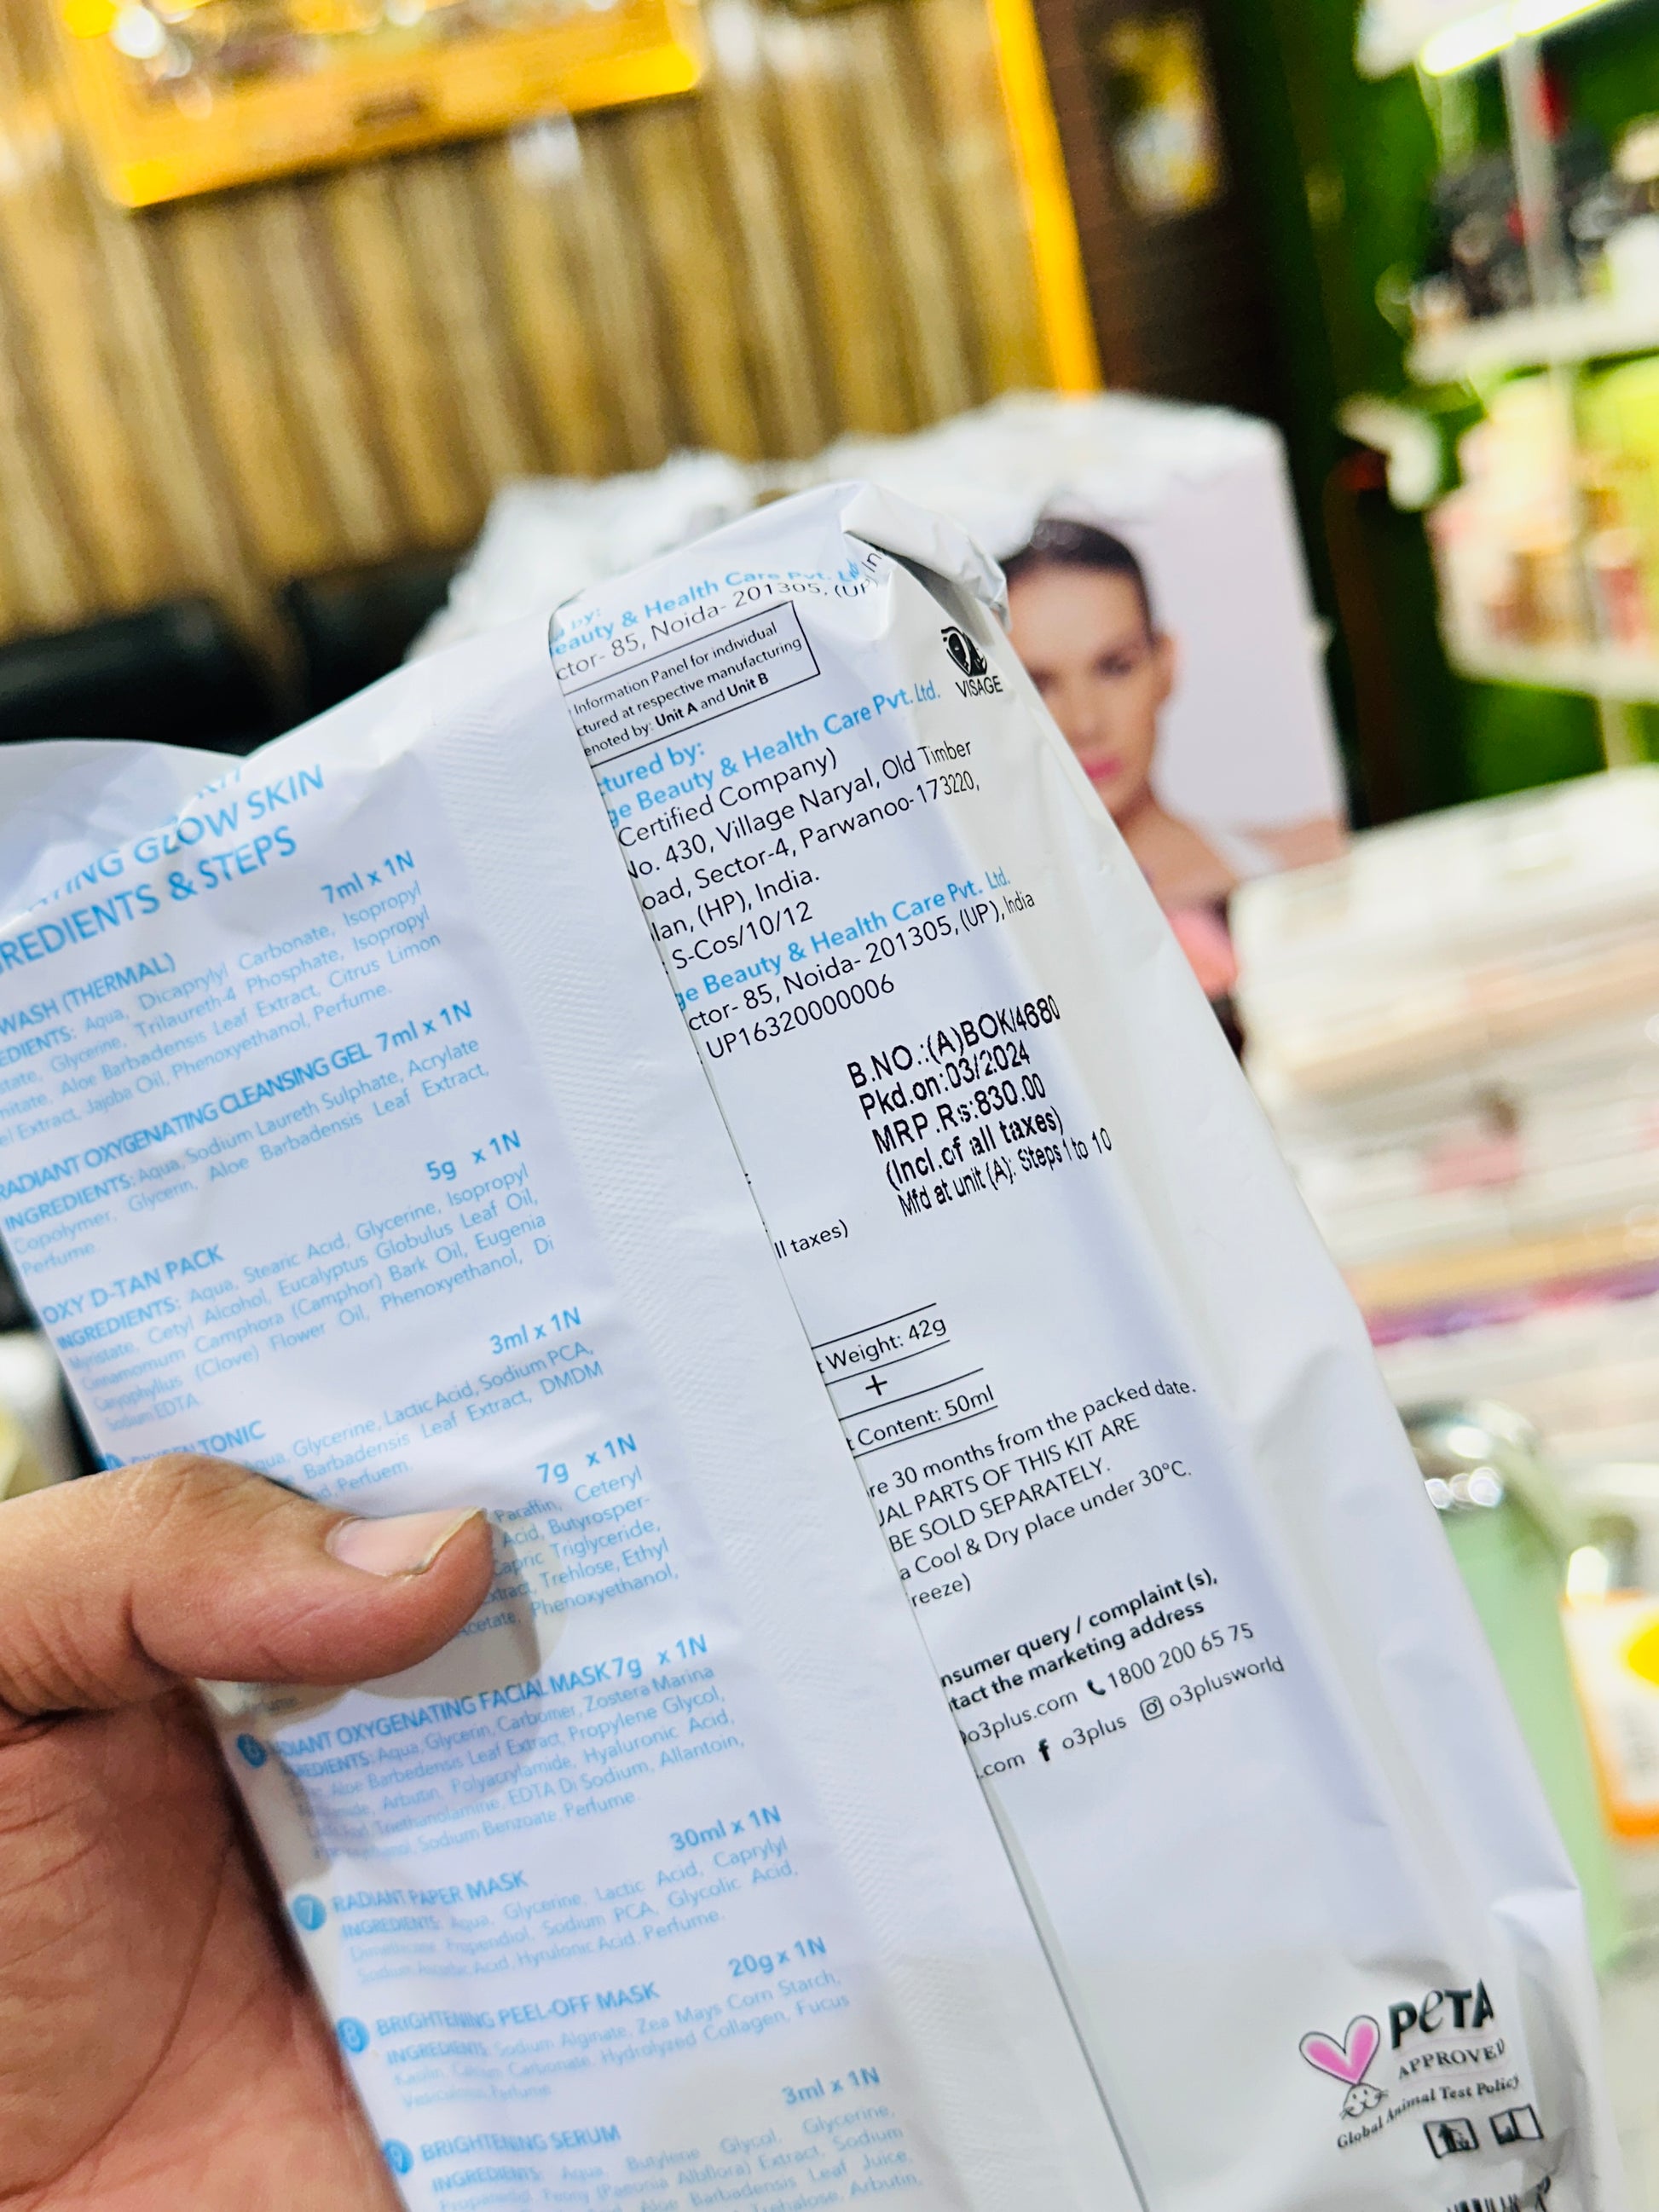 GLOW SKIN
REDIENTS & STEPS
7ml x 1N
WASH (THERMAL)
EDIENTS: Aqua, Dicaprylyl Carbonate, Isopropyl
Glycerine, Trilaureth-4 Phosphate, Isopropyl
Aloe Barbadensis Leaf Extract, Citrus Limon
Extract, Jajoba Oil, Phenoxyethanol, Perfume.
RADIANT OXYGENATING CLEANSING GEL 7ml x 1N
INGREDIENTS: Aqua, Sodium Laureth Sulphate, Acrylate
Copolymer, Glycerin, Aloe Barbadensis Leaf Extract,
Perfume.
5g x 1N
OXY D-TAN PACK
INGREDIENTS: Aqua, Stearic Acid, Glycerine, Isopropyl
Myristate, Cetyl Alcohol, Eucalyptus Globulus Leaf Oil,
Cinnamomum Camphora (Camphor) Bark Oil, Eugenia
Caryophyllus (Clove) Flower Oil, Phenoxyethanol, Di
Sodium EDTA.
3ml x 1N
TONIC
Glycerine, Lactic Acid, Sodium PCA,
Barbadensis Leaf Extract, DMDM
Perfuem.
7g x 1N
Paraffin, Ceteryl
Acid, Butyrosper-
Capric Triglyceride,
Trehlose, Ethyl
Acetate, Phenoxyethanol,
6 DIANT OXYGENATING FACIAL MASK 7g x 1N
REDIENTS: Aqua, Glycerin, Carbomer, Zostera Marina
Aloe Barbedensis Leaf Extract, Propylene Glycol,
Arbutin, Polyacrylamide, Hyaluronic Acid,
Triethanolamine, EDTA Di Sodium, Allantoin,
Sodium Benzoate, Perfume.
30ml x 1N
7 RADIANT PAPER MASK
INGREDIENTS: Aqua, Glycerine, Lactic Acid, Caprylyl
Dimethicone, Propendiol, Sodium PCA, Glycolic Acid,
Acid, Perfume.
20g x 1N
8 BRIGHTENING PEEL-OFF MASK
INGREDIENTS: Sodium Alginate, Zea Mays Corn Starch,
Kaolin, Carbonate, Hydrolyzed Collagen, Fucus
3ml x 1N
9 BRIGHTENING SERUM
INGREDIENTS: Aqua, Butylene Glycol, Glycerine,
Extract, Sodium
Aloe Barbadensis Leaf Juice,
Trehalose, Arbutin,
by:
eauty & Health Care Pvt.
ctor- 85, Noida- 201305, (UP)
Information Panel for individual
ctured at respective manufacturing
enoted by: Unit A and Unit B
VISAGE
tured by:
ge Beauty & Health Care Pvt. Ltd.
Certified Company)
No. 430, Village Naryal, Old Timber
oad, Sector-4, Parwanoo-173220,
lan, (HP), India.
S-Cos/10/12
ge Beauty & Health Care Pvt. Ltd.
ctor- 85, Noida- 201305, (UP), India
UP16320000006
B.NO.:(A)BOK/4680
Pkd.on:03/2024
MRP.Rs:830.00
(Incl.of all taxes)
Mfd at unit (A): Steps 1 to 10
ll taxes)
t Weight: 42g
+
t Content: 50ml
re 30 months from the packed date.
JAL PARTS OF THIS KIT ARE
BE SOLD SEPARATELY.
a Cool & Dry place under 30°C.
reeze)
nsumer query / complaint (s),
tact the marketing address
o3plus.com 1800 200 65 75
.com o3plus o3plusworld
PETA
APPROVED
Global Animal Test Policy